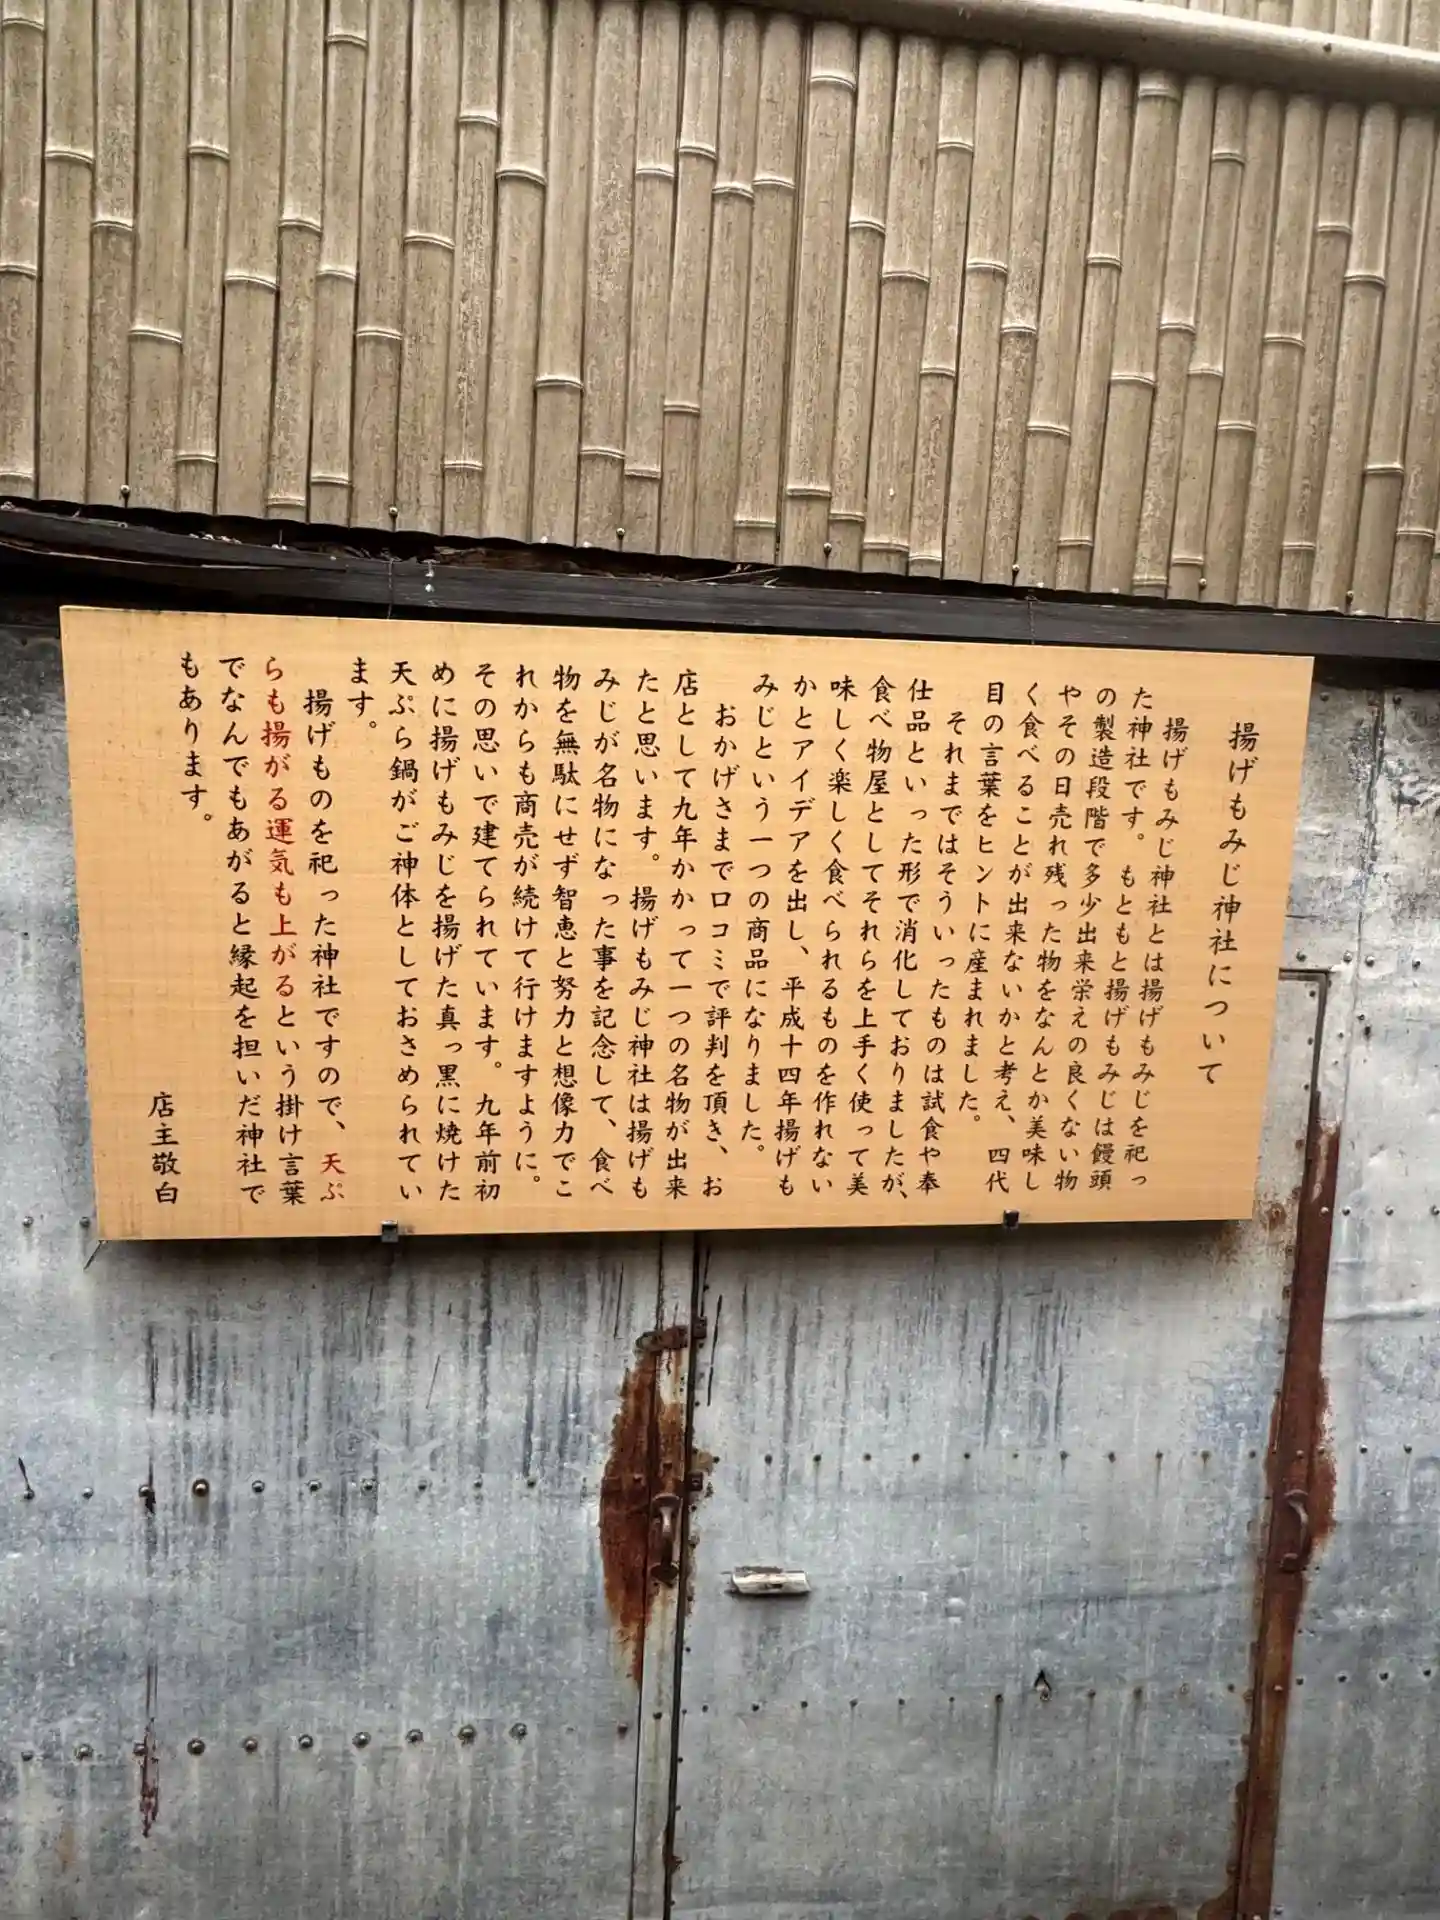 揚げもみじ神社について
揚げもみじ神社とは揚げもみじを祀っ
た神社です。もともと揚げもみじは饅頭
の製造段階で多少出来栄えの良くない物
やその日売れ残った物をなんとか美味し
く食べることが出来ないかと考え、四代
目の言葉をヒントに産まれました。
それまではそういったものは試食や奉
仕品といった形で消化しておりましたが、
食べ物屋としてそれらを上手く使って美
味しく楽しく食べられるものを作れない
かとアイデアを出し、平成十四年揚げも
みじという一つの商品になりました。
おかげさまで口コミで評判を頂き、お
店として九年かかって一つの名物が出来
たと思います。揚げもみじ神社は揚げも
みじが名物になった事を記念して、食べ
物を無駄にせず智恵と努力と想像力でこ
れからも商売が続けて行けますように。
その思いで建てられています。九年前初
めに揚げもみじを揚げた真っ黒に焼けた
天ぷら鍋がご神体としておさめられてい
ます。
揚げものを祀った神社ですので、天ぷ
らも揚がる運気も上がるという掛け言葉
でなんでもあがると縁起を担いだ神社で
もあります。
店主敬白